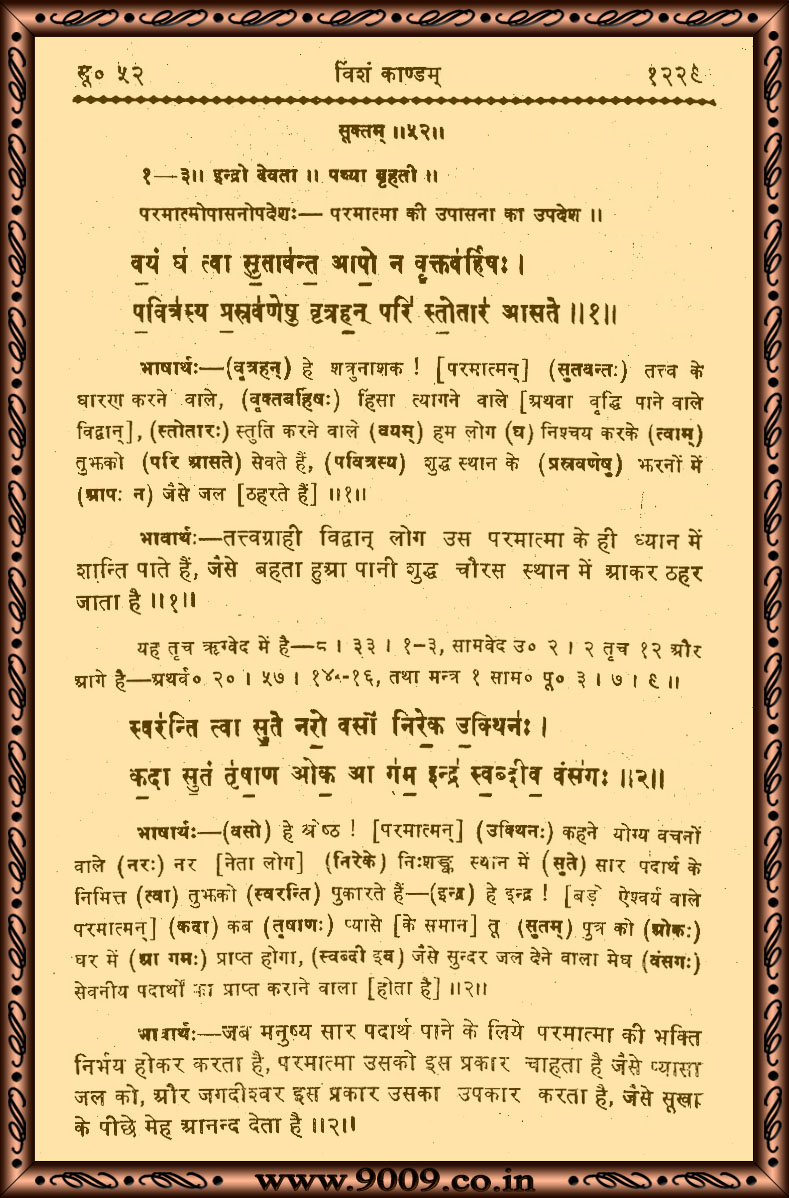 सू० ५२ विंशं काण्डम् १२२९
सूक्तम् ॥५२॥
१—३॥ इन्द्रो देवता ॥ पथ्या बृहती ॥
परमात्मोपासनोपदेशः— परमात्मा की उपासना का उपदेश ॥
व॒यं घ॑ त्वा सु॒ताव॑न्त॒ आपो॒ न वृ॒क्तब॑र्हिषः ।
प॒वित्र॑स्य प्र॒स्रव॑णेषु वृत्रह॒न् परि॑ स्तो॒तार॑ आसते ॥१॥
भाषार्थः—(वृत्रहन्) हे शत्रुनाशक ! [परमात्मन्] (सुतवन्तः) तत्त्व के
धारण करने वाले, (वृक्तबर्हिषः) हिंसा त्यागने वाले [अथवा वृद्धि पाने वाले
विद्वान्], (स्तोतारः) स्तुति करने वाले (वयम्) हम लोग (घ) निश्चय करके (त्वाम्)
तुझको (परि आसते) सेवते हैं, (पवित्रस्य) शुद्ध स्थान के (प्रस्रवणेषु) झरनों में
(आपः न) जैसे जल [ठहरते हैं] ॥१॥
भावार्थः—तत्त्वग्राही विद्वान् लोग उस परमात्मा के ही ध्यान में
शान्ति पाते हैं, जैसे बहता हुआ पानी शुद्ध चौरस स्थान में आकर ठहर
जाता है ॥१॥
यह तृच ऋग्वेद में है—८ । ३३ । १-३, सामवेद उ० २ । २ तृच १२ और
आगे है—अथर्व० २० । ५७ । १४-१६, तथा मन्त्र १ साम० पू० ३ । ७ । ९ ॥
स्वर॑न्ति त्वा सु॒ते नरो॒ वसो॑ निरे॒क उ॒क्थिनः॑ ।
क॒दा सु॒तं तृ॑षा॒ण ओक॒ आ ग॑म॒ इन्द्र॑ स्व॒ब्दीव॒ वंस॑गः ॥२॥
भाषार्थः—(वसो) हे श्रेष्ठ ! [परमात्मन्] (उक्थिनः) कहने योग्य वचनों
वाले (नरः) नर [नेता लोग] (निरेके) निःशङ्क स्थान में (सुते) सार पदार्थ के
निमित्त (त्वा) तुझको (स्वरन्ति) पुकारते हैं—(इन्द्र) हे इन्द्र ! [बड़े ऐश्वर्य वाले
परमात्मन्] (कदा) कब (तृषाणः) प्यासे [के समान] तू (सुतम्) पुत्र को (ओकः)
घर में (आ गमः) प्राप्त होगा, (स्वब्दी इव) जैसे सुन्दर जल देने वाला मेघ (वंसगः)
सेवनीय पदार्थों का प्राप्त कराने वाला [होता है] ॥२॥
भावार्थः—जब मनुष्य सार पदार्थ पाने के लिये परमात्मा की भक्ति
निर्भय होकर करता है, परमात्मा उसको इस प्रकार चाहता है जैसे प्यासा
जल को, और जगदीश्वर इस प्रकार उसका उपकार करता है, जैसे सूखा
के पीछे मेह आनन्द देता है ॥२॥
www.9009.co.in